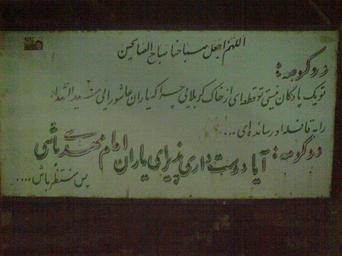 اللهم اجعل صباحنا صباح الصالحین
دوکوهه:
تو یک پادگان نیستی تو قطعه‌ای از خاک کربلایی چرا که یاران عاشورایی سیدالشهداء
را به قافله او رسانده‌ای ...
دوکوهه: آیا دوست داری پذیرای یاران امام مهدی باشی
پس منتظر باش ....